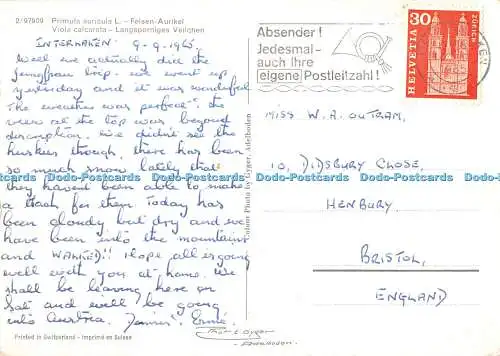 2/97809 Primula auricula L. – Felsen-Aurikel
Viola calcarata – Langsporniges Veilchen
INTERLAKEN 9-9-196
Well we actually did the
Jungfrau trip. we went up
yesterday and it was wonderful
The weather was perfect the
views at the top was beyond
description. We didn't see the
huskies though, there has been
so much snow lately that
they havent been able to make
a track for them Today has
been cloudy but dry and we
have been into the mountains
and WALKED!! Hope all is going
well with you at home. We
shall be leaving here on
Sat and will be going
into Austria.
Printed in Switzerland - Imprimé en Suisse
Colour Photo by Gyger, Adelboden
Absender!
Jedesmal –
auch Ihre
eigene Postleitzahl!
30
HELVETIA
ZÜRICH
MISS W. A. OUTRAM,
10, DIDSBURY CLOSE,
HENBURY,
BRISTOL,
ENGLAND
Dodo-Postcards Dodo-Postcards Dodo-Postcards Dodo-Postcards